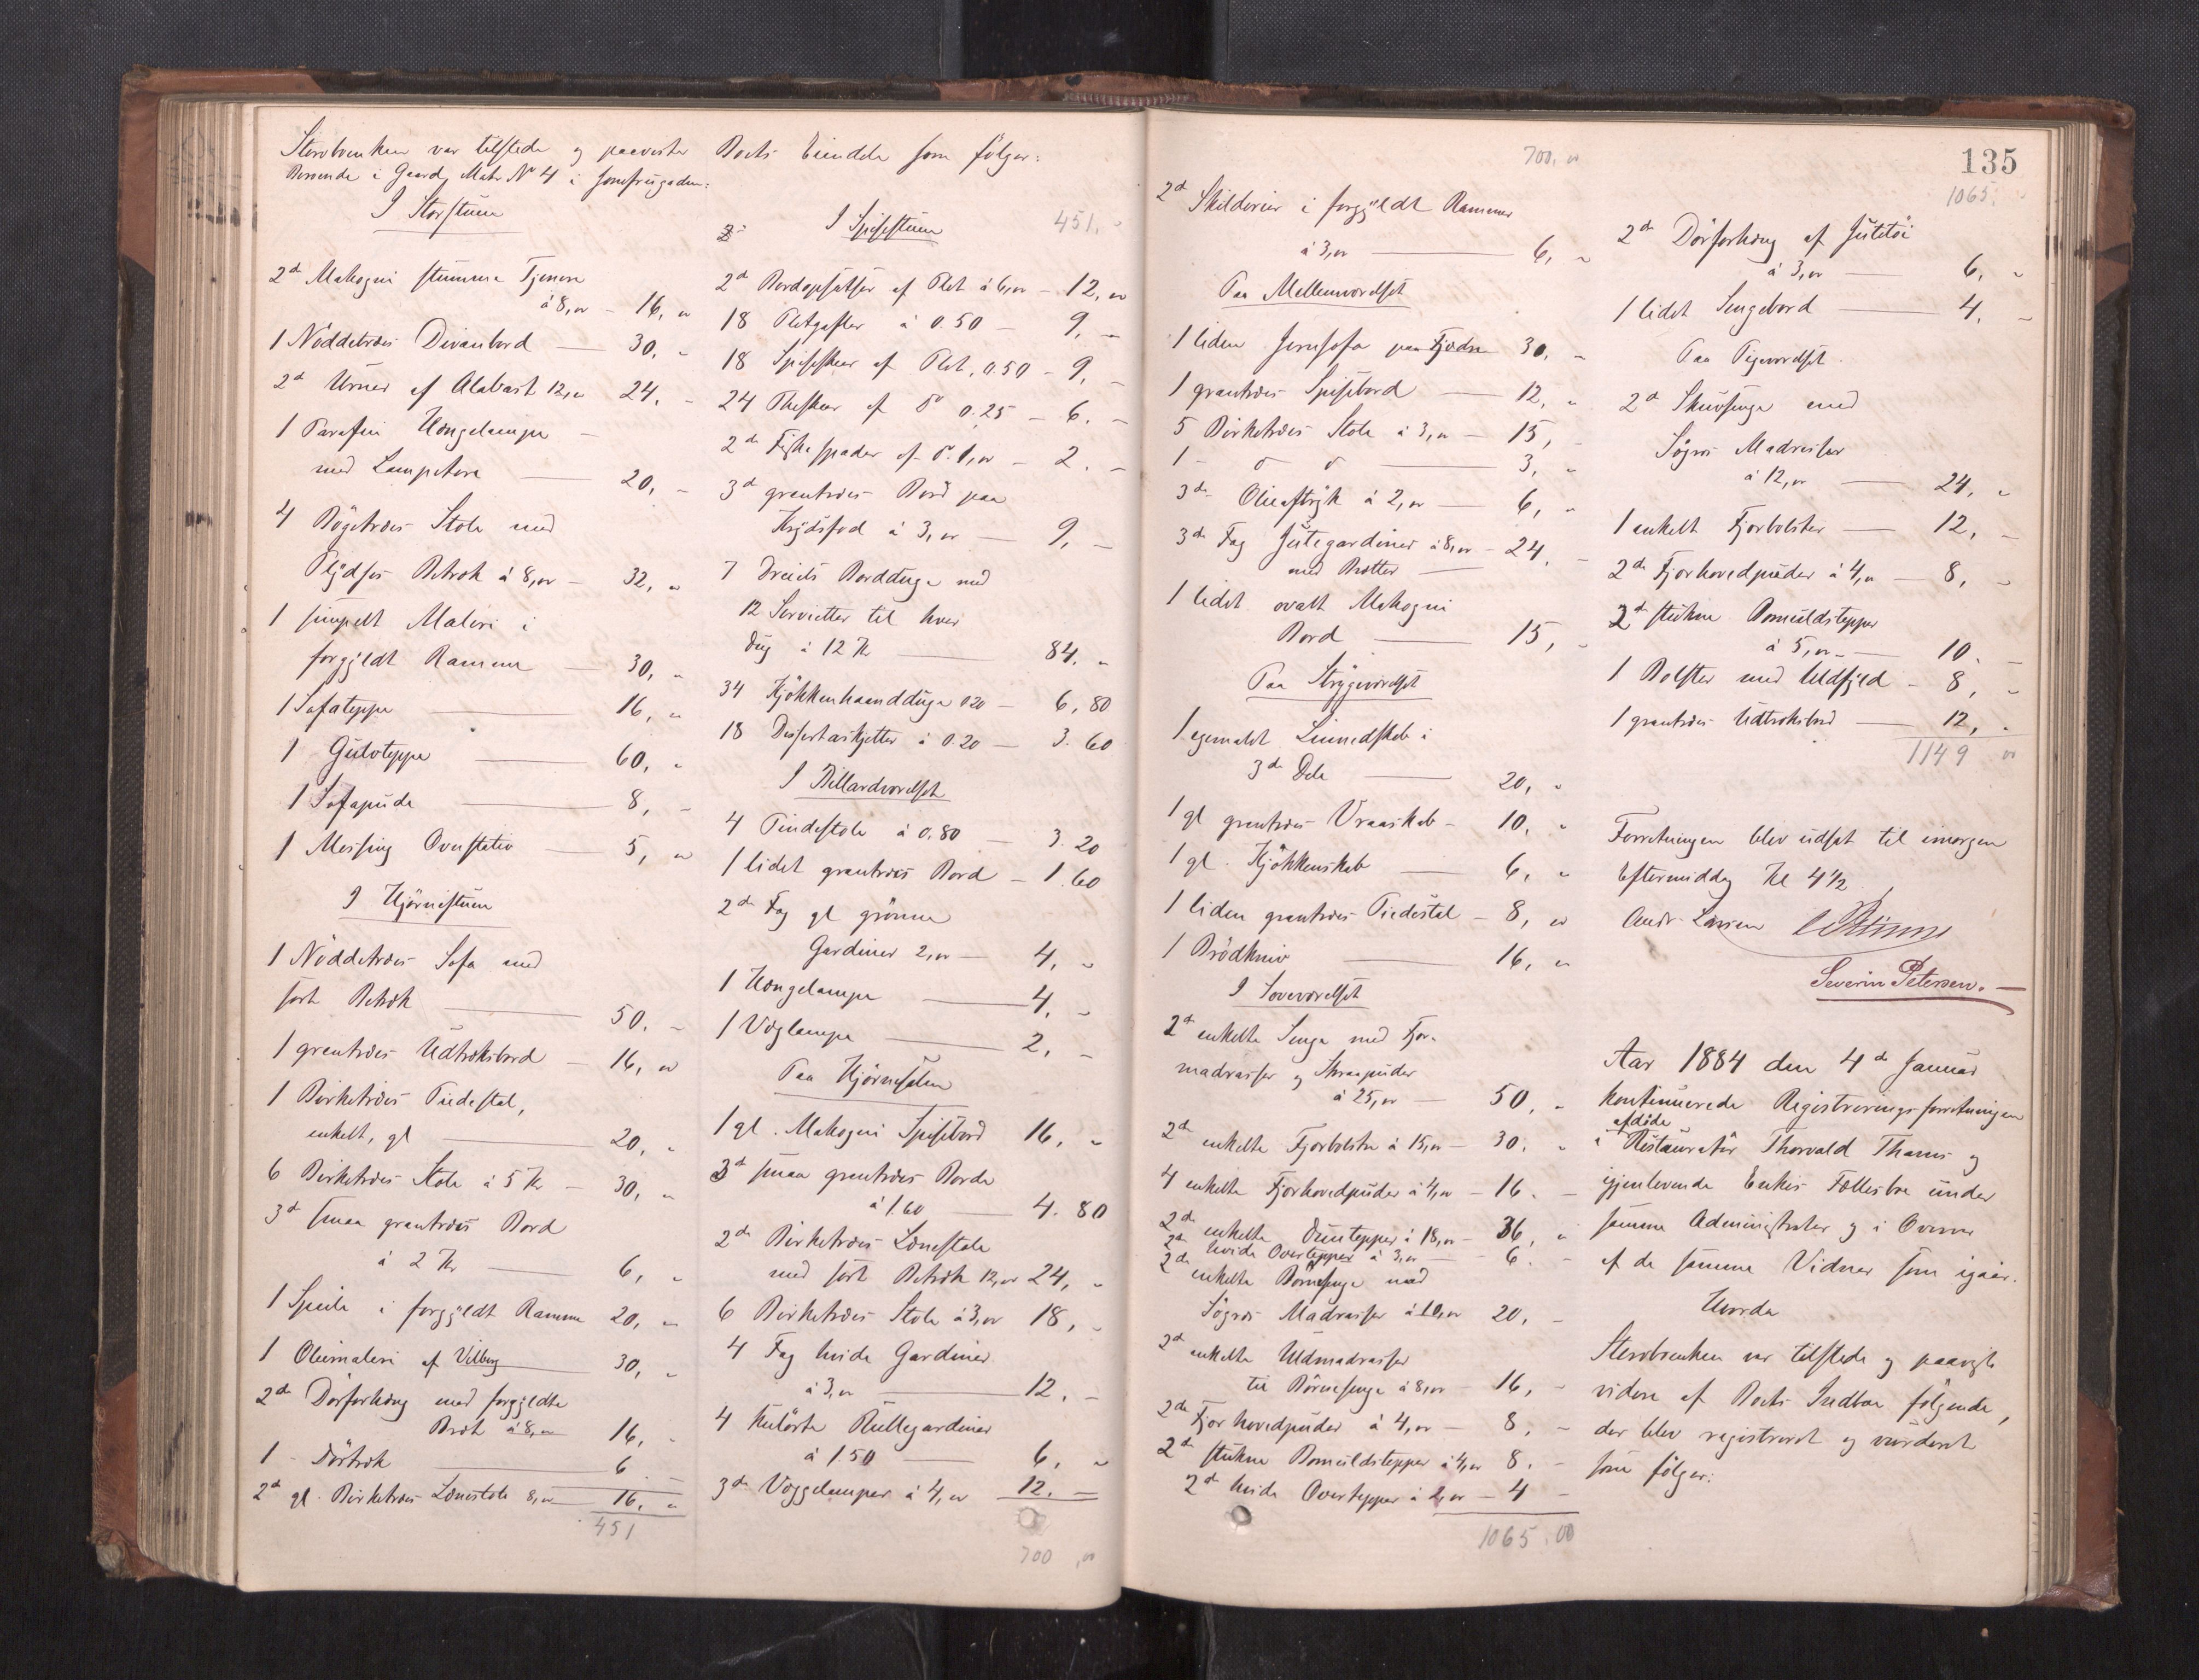 Stervboenken var tilstede og paaviste Boets Eiendele som følger:
Beroende i Gaard Matr No 4 i Jomfrugaden:
I Storstuen
2de Mahogni stumme Tjenere
à 8,00 – 16, "
1 Nøddetræes Divanbord — 30, "
2de Urner af Alabast 12,00 24, –
1 Parafin Hængelampe –
med Lampetere — 20, –
4 Bøgetræes Stole med
Plydses Betræk à 8,00 – 32, "
1 simpelt Maleri i
forgyldt Ramme — 30, "
1 Sofateppe — 16, "
1 Gulvteppe — 60, "
1 Sofapude — 8, –
1 Messing Ovnstativ — 5, "
I Hjørnestuen
1 Nøddetræes Sofa med
sort Betræk — 50. –
1 grantræes Udtræksbord – 16, "
1 Birketræes Piedestal,
enkelt, gl — 20, "
6 Birketræes Stole à 5 Kr – 30, "
3de smaa grantræes Bord
à 2 Kr — 6, "
1 Speile i forgyldt Ramme 20, "
1 Oliemaleri af Velberg 30, "
2de Dørforhæng med forgyldte
Bræt à 8,00 16, "
1 – Dørtræk — 6. –
2de gl. Birketræes Lænestole 8,00 16, "
451
451. –
I Spisestuen
2de Bordopsatser af Plet à 6,00 – 12, "
18 Pletgafler à 0.50 — 9, –
18 Spiseskeer af Plet, 0.50 – 9, –
24 Theskeer af do 0.25 – 6. –
2de Fiskespader af do 1,00 – 2. –
3de grantræes Bord paa
Krydsfod à 3,00 — 9, –
7 Dreiels Bordduge med
12 Servietter til hver
Dug à 12 Kr — 84. "
34 Kjøkkenhaandduge 0.20 – 6,80
18 Dessertaskjetter à 0.20 – 3.60
I Billardværelset
4 Pindestole à 0.80 — 3.20
1 lidet grantræes Bord – 1.60
2de Fag gl grønne
Gardiner 2,00 – 4, "
1 Hængelampe — 4. "
1 Væglampe — 2. –
Paa Hjørnesalen
1 gl. Mahogni Spisebord 16, "
3de smaa grantræes Borde
à 1.60 — 4.80
2de Birketræes Lænestole
med sort Betræk 12,00 24, "
6 Birketræes Stole à 3,00 18, "
4 Fag hvide Gardiner
à 3,00 — 12. –
4 kulørte Rullegardiner
à 1.50 — 6, "
3de Væggelamper à 4,00 12. –
700,00
700, 00
2de Skilderier i forgyldt Rammer
à 3,00 — 6, "
Paa Mellemværelset
1 liden Jernsofa paa Fjedre 30, –
1 grantræes Spisebord — 12, "
5 Birketræes Stole à 3,00 – 15, –
1 – do do — 3, "
3de Olieaftryk à 2,00 – 6, "
3de Fag Jutegardiner à 8,00 – 24. –
med Bretter
1 lidet ovalt Mahogni
Bord — 15, –
Paa Strygeværelset
1 egemalt Linnedskab i
3de Dele — 20, "
1 gl grantræes Vraaskab – 10. "
1 gl. Kjøkkenskab — 6, "
1 liden grantræes Piedestal – 8, "
1 Brødkniv — 16, "
I Soveværelset
2de enkelte Senge med Fjer-
madrasser og Skraapuder
à 25,00 – 50, "
2de enkelte Fjorbolstre à 15,00 – 30. "
4 enkelte Fjorhovedpuder à 4,00 – 16. –
2de enkelte Duntepper à 18,00 – 36, "
2de hvide Overtepper à 3,00 – 6. –
2de enkelte Børnesenge med
Søgræs Madrasser à 10,00 20, –
2de enkelte Uldmadrasser
til Børnesenge à 8,00 – 16, –
2de Fjor hovedpuder à 4,00 – 8, –
2de stukne Bomuldstepper à 4,00 8. –
2de hvide Overtepper à 2,00 – 4 –
1065.00
135
1065.
2de Dørforhæng af Jutetøi
à 3,00 — 6, "
1 lidet Sengebord — 4, –
Paa Pigeværelset.
2de Skuvsenge med
Søgræs Madrasser
à 12,00 — 24, "
1 enkelt Fjorbolster — 12, –
2de Fjorhovedpuder à 4,00 – 8, –
2de stukne Bomuldstepper
à 5,00 — 10. –
1 Bolster med Uldfyld – 8, "
1 grantræes Udtræksbord — 12, "
1149 00
Forretningen blev udsat til imorgen
Eftermiddag Kl 4½
Andr Larsen
Severin Petersen.
Aar 1884 den 4de Januar
kontinuerede Registreringsforretningen
i afdøde Restauratør Thorvald Thams og
gjenlevende Enkes Fællesbo under
samme Administrator og i Overvær
af de samme Vidner som igaar.
Hvorda
Stervboenken var tilstede og paaviste
videre af Boets Indbo følgende,
der blev registreret og vurderet
som følger: